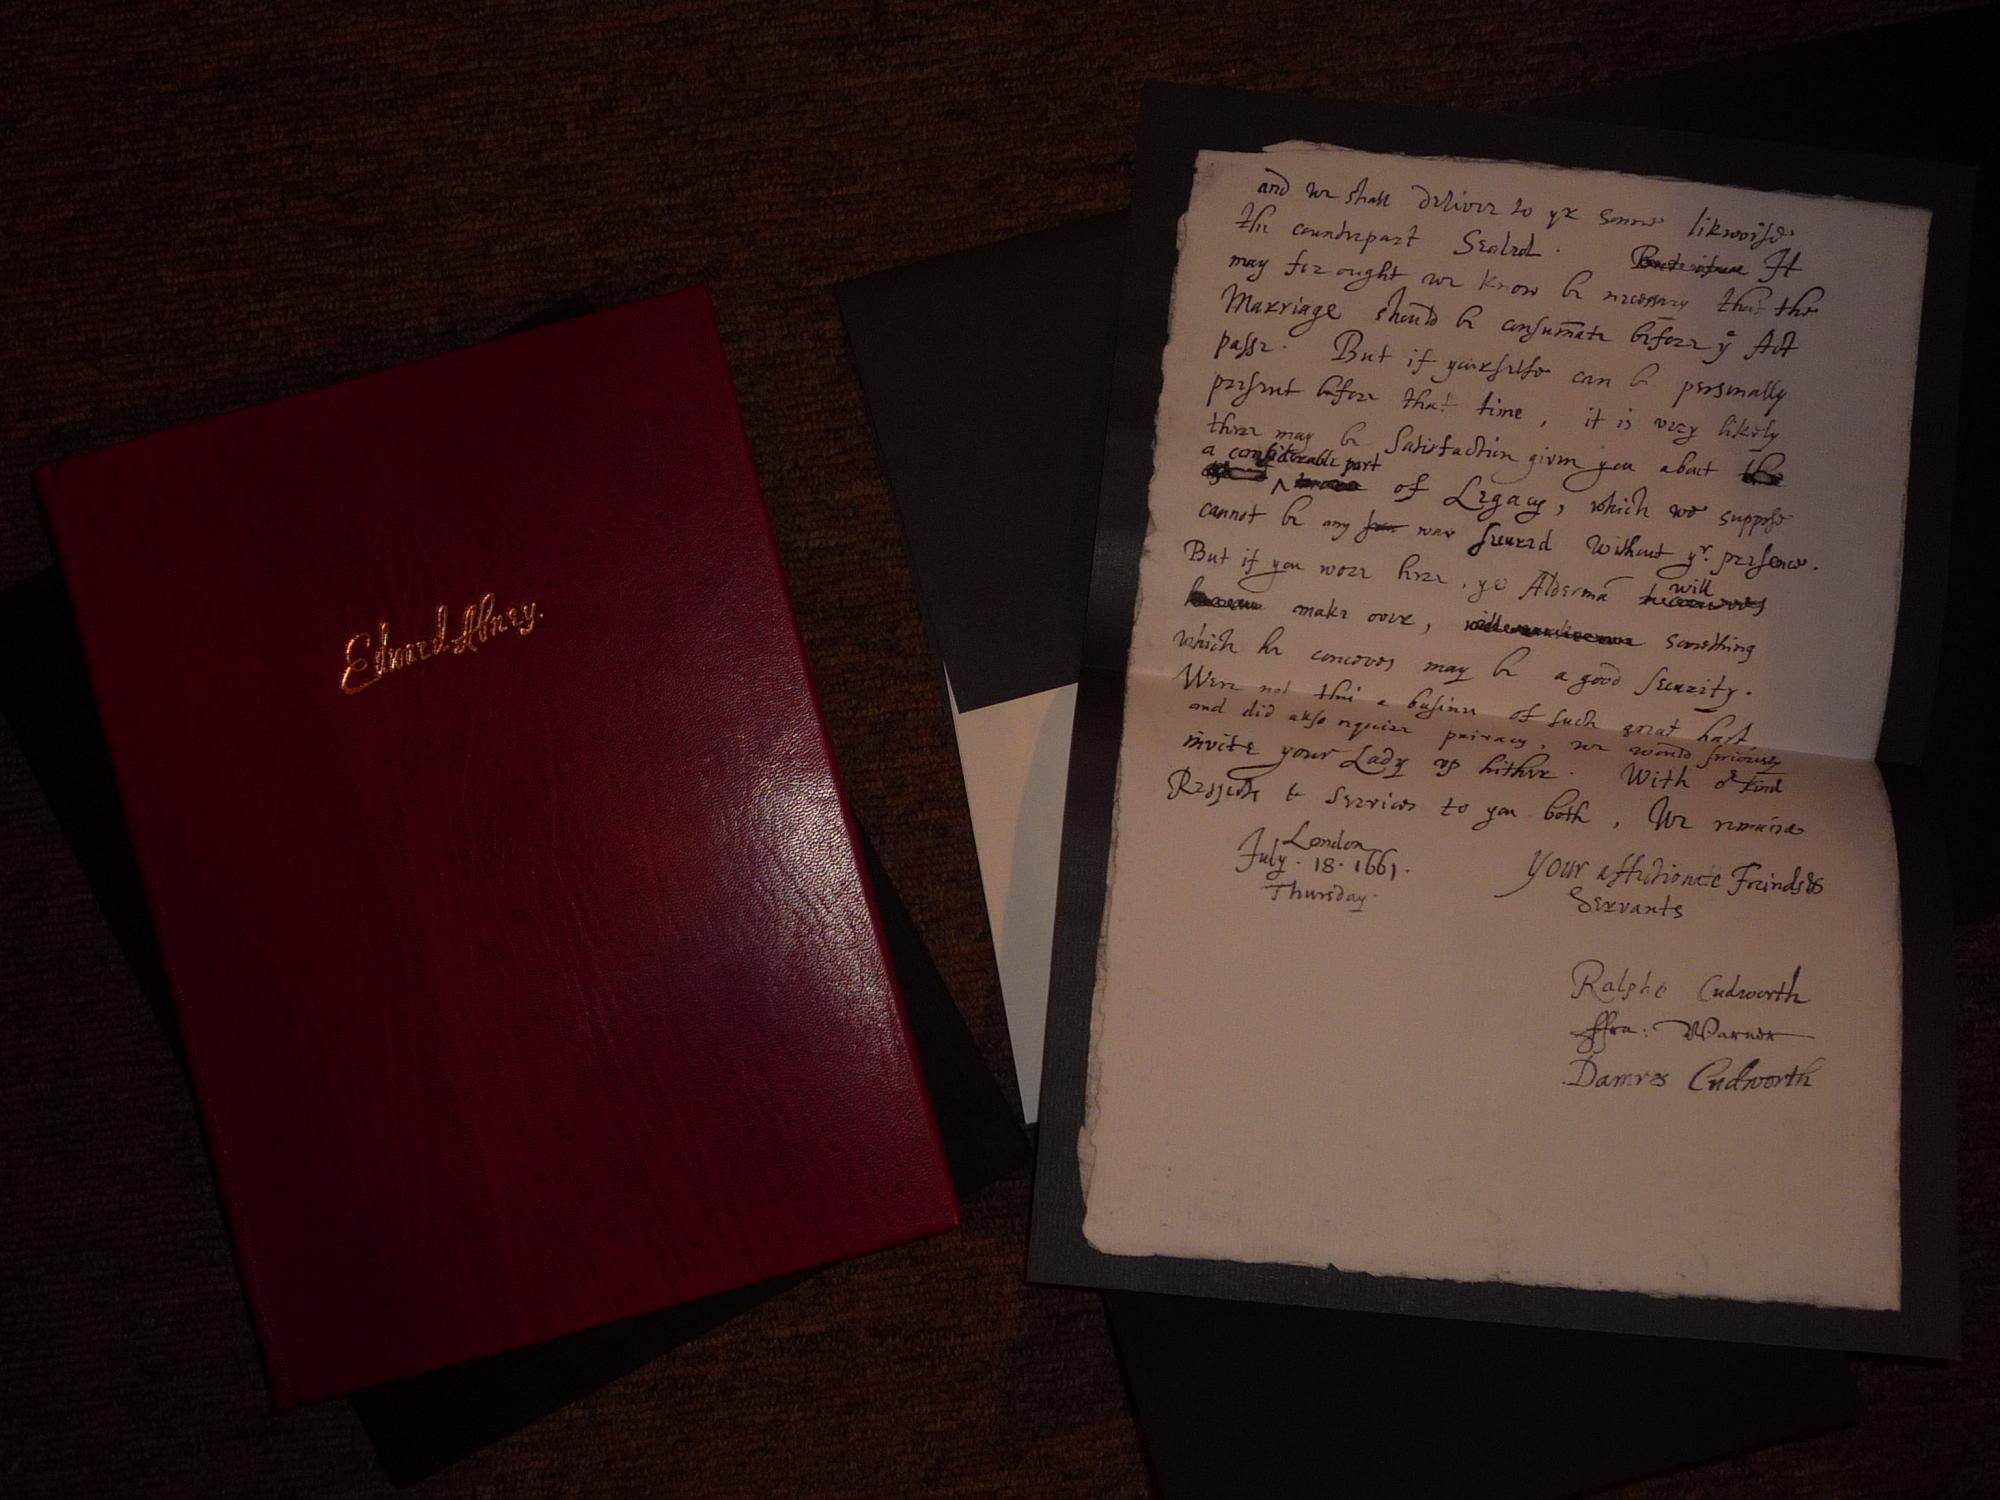 Edward Abney.
and we shall deliver to yr sonne likewise
the counterpart Sealed. It
may for ought we know be necessary that the
Marriage should be consum̄ate before yᵉ Act
passe. But if yourselfe can be personally
present before that time, it is very likely
there may be Satisfaction given you about the
a considerable part
of Legacy, which we suppose
cannot be any way secured without yr. presence.
But if you were here, yᵉ Aldermā will
make over, something
which he conceves may be a good security.
Were not this a busines of such great hast
and did also require privacy, we would seriously
invite your Lady up hither. With oʳ kind
Respects & services to you both, We remaine
London
July. 18. 1661.
Thursday.
Your affectionate Freinds &
Servants
Ralphe Cudworth
ffra: Warner
Damres Cudworth